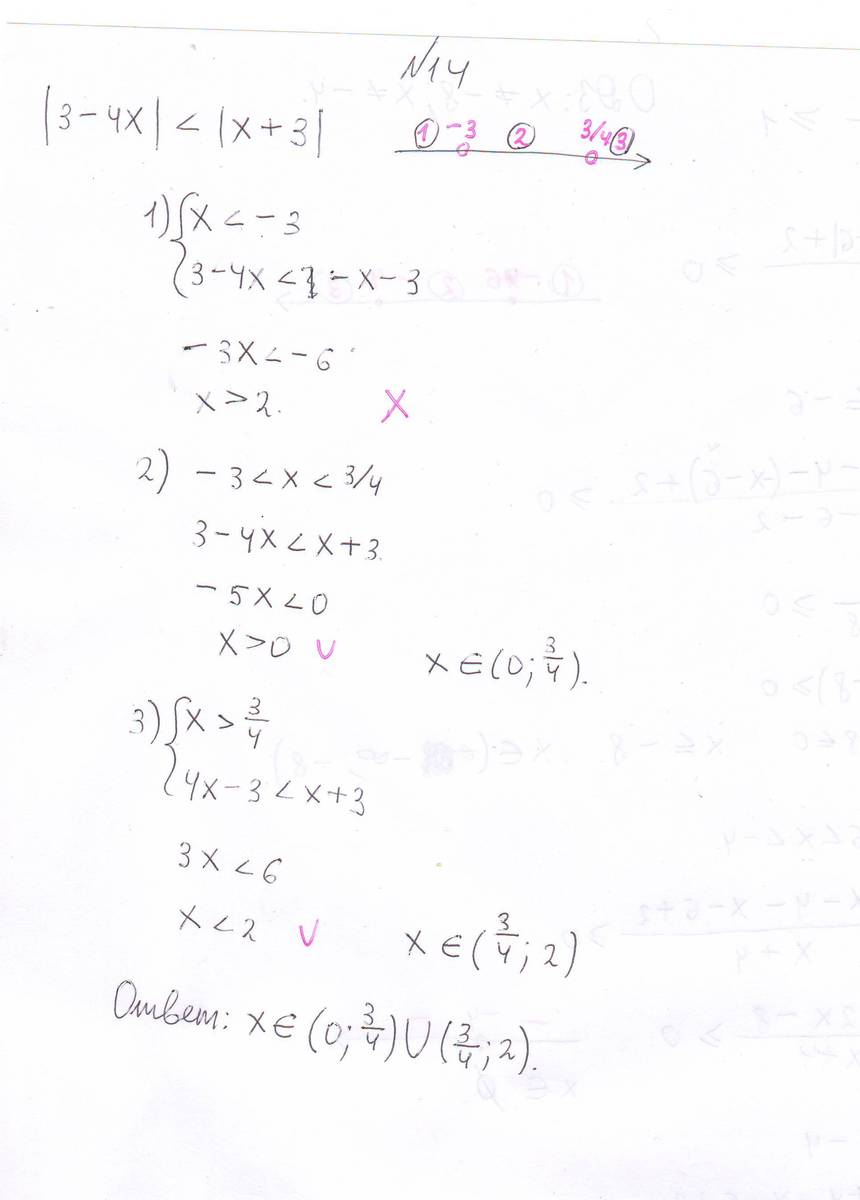 N14
|3-4x| < |x+3|
① -3 ② 3/4 ③
1) { x < -3
3-4x < -x-3
-3x < -6
x > 2. X
2) -3 < x < 3/4
3-4x < x+3
-5x < 0
x > 0 V x ∈ (0; 3/4).
3) { x > 3/4
4x-3 < x+3
3x < 6
x < 2 V x ∈ (3/4; 2)
Ответ: x ∈ (0; 3/4) ∪ (3/4; 2).